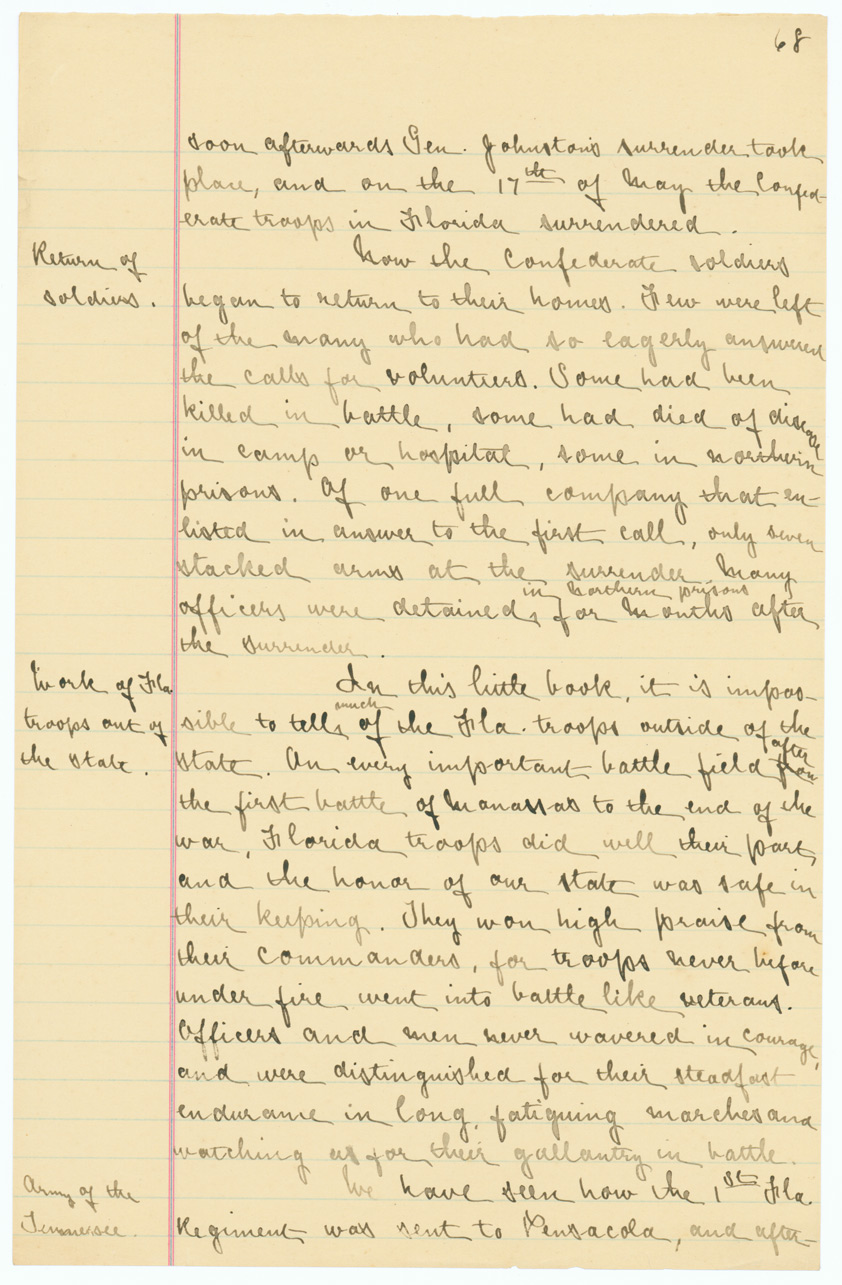 68
soon afterwards Gen. Johnston's surrender took
place, and on the 17th of May the Confed-
erate troops in Florida surrendered.
Return of
soldiers.
Now the Confederate soldiers
began to return to their homes. Few were left
of the many who had so eagerly answered
the calls for volunteers. Some had been
killed in battle, some had died of disease
in camp or hospital, some in northern
prisons. Of one full company that en-
listed in answer to the first call, only seven
stacked arms at the surrender. Many
in Northern prisons
officers were detained, for months after
the surrender.
Work of Fla
troops out of
the state.
In this little book, it is impos-
much
sible to tell of the Fla. troops outside of the
after
state. On every important battle field from
the first battle of Manassas to the end of the
war, Florida troops did well their part,
and the honor of our state was safe in
their keeping. They won high praise from
their commanders, for troops never before
under fire went into battle like veterans.
Officers and men never wavered in courage,
and were distinguished for their steadfast
endurance in long, fatiguing marches and
watching as for their gallantry in battle.
Army of the
Tennessee.
We have seen how the 1st Fla.
Regiment was sent to Pensacola, and after-